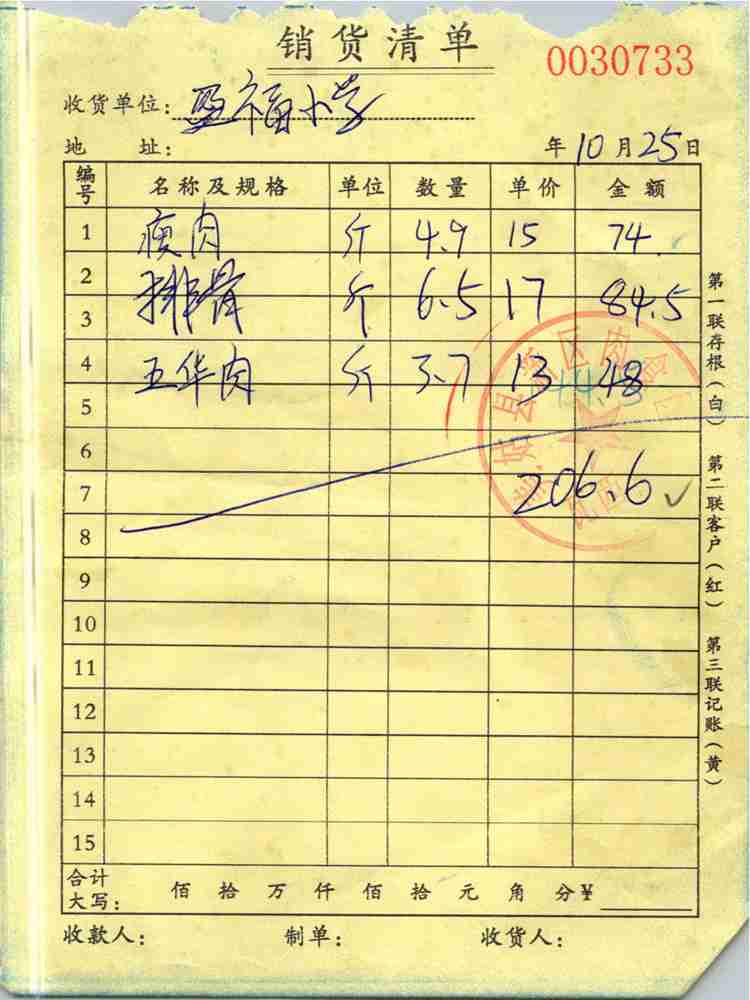 销货清单
0030733
收货单位: 盈福小学
地 址: 年 10 月 25 日
编号 名称及规格 单位 数量 单价 金额
1 瘦肉 斤 4.9 15 74
2 排骨 斤 6.5 17 84.5
3
4 五华肉 斤 3.7 13 48
5
6
7 206.6
8
9
10
11
12
13
14
15
合计大写: 佰 拾 万 仟 佰 拾 元 角 分 ¥
收款人: 制单: 收货人:
第一联存根(白) 第二联客户(红) 第三联记账(黄)